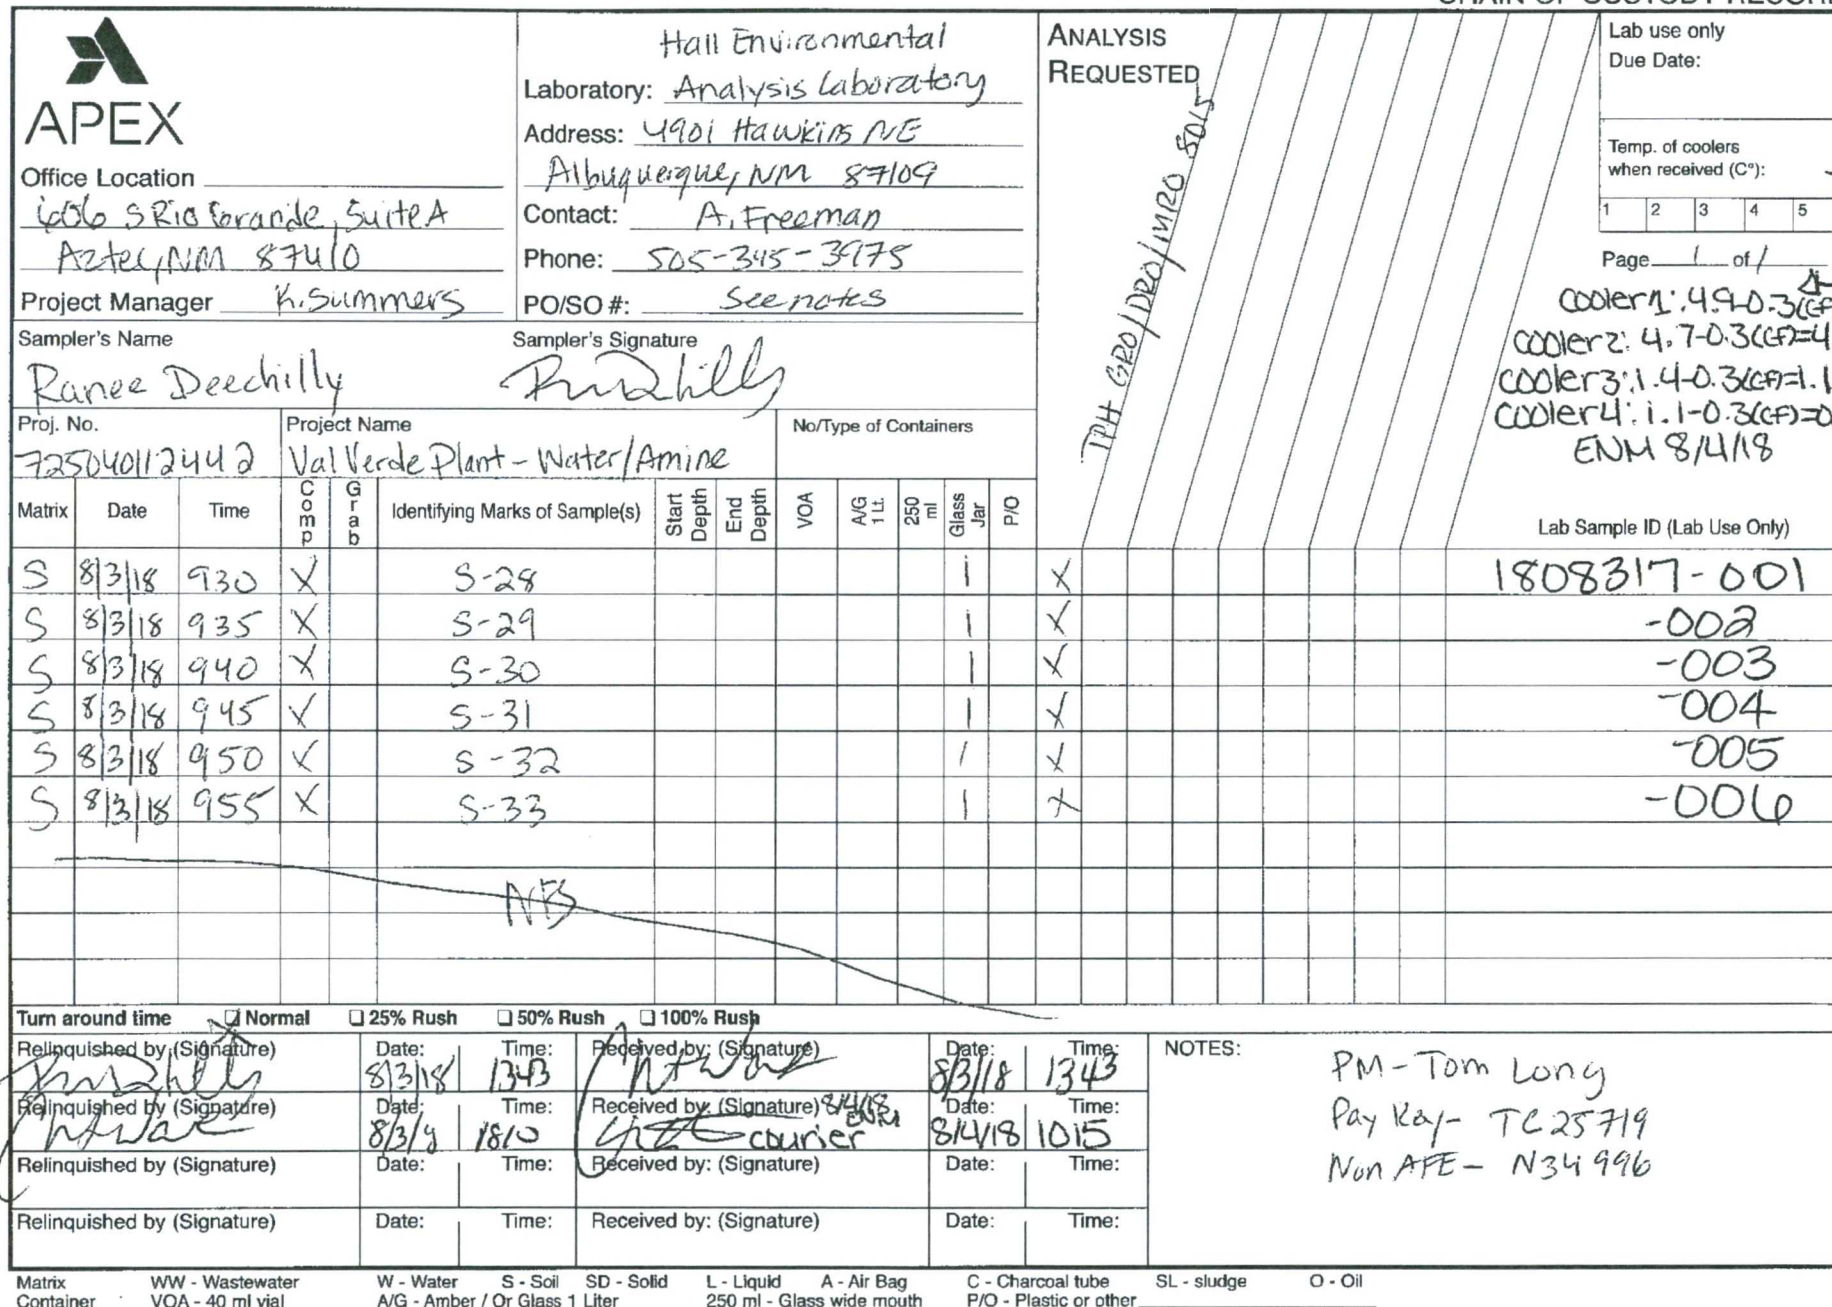 CHAIN OF CUSTODY RECORD
APEX
Office Location
606 S Rio Grande, Suite A
Aztec, NM 87410
Project Manager K. Summers
Hall Environmental
Laboratory: Analysis Laboratory
Address: 4901 Hawkins NE
Albuquerque, NM 87109
Contact: A. Freeman
Phone: 505-345-3975
PO/SO #: See notes
ANALYSIS
REQUESTED
TPH GRO/DRO/MRO 8015
Lab use only
Due Date:
Temp. of coolers
when received (C°):
1 2 3 4 5
Page 1 of 1
Cooler 1: 4.9-0.3(CF)
Cooler 2: 4.7-0.3(CF)=4
Cooler 3: 1.4-0.3(CF)=1.1
Cooler 4: 1.1-0.3(CF)=0
ENM 8/4/18
Sampler's Name
Ranee Deechilly
Sampler's Signature
Proj. No.
725040112442
Project Name
Val Verde Plant - Water/Amine
No/Type of Containers
Matrix Date Time Comp Grab Identifying Marks of Sample(s) Start Depth End Depth VOA A/G 1 Lt. 250 ml Glass Jar P/O Lab Sample ID (Lab Use Only)
S 8/3/18 930 X S-28 1 X 1808317-001
S 8/3/18 935 X S-29 1 X -002
S 8/3/18 940 X S-30 1 X -003
S 8/3/18 945 X S-31 1 X -004
S 8/3/18 950 X S-32 1 X -005
S 8/3/18 955 X S-33 1 X -006
Turn around time Normal 25% Rush 50% Rush 100% Rush
Relinquished by (Signature) Date: 8/3/18 Time: 1343 Received by: (Signature) Date: 8/3/18 Time: 1343
Relinquished by (Signature) Date: Time: 1810 Received by: (Signature) 8/4/18 ENM courier Date: 8/4/18 Time: 1015
Relinquished by (Signature) Date: Time: Received by: (Signature) Date: Time:
Relinquished by (Signature) Date: Time: Received by: (Signature) Date: Time:
NOTES:
PM - Tom Long
Pay Key - TC25719
Non AFE - N34996
Matrix WW - Wastewater W - Water S - Soil SD - Solid L - Liquid A - Air Bag C - Charcoal tube SL - sludge O - Oil
Container VOA - 40 ml vial A/G - Amber / Or Glass 1 Liter 250 ml - Glass wide mouth P/O - Plastic or other